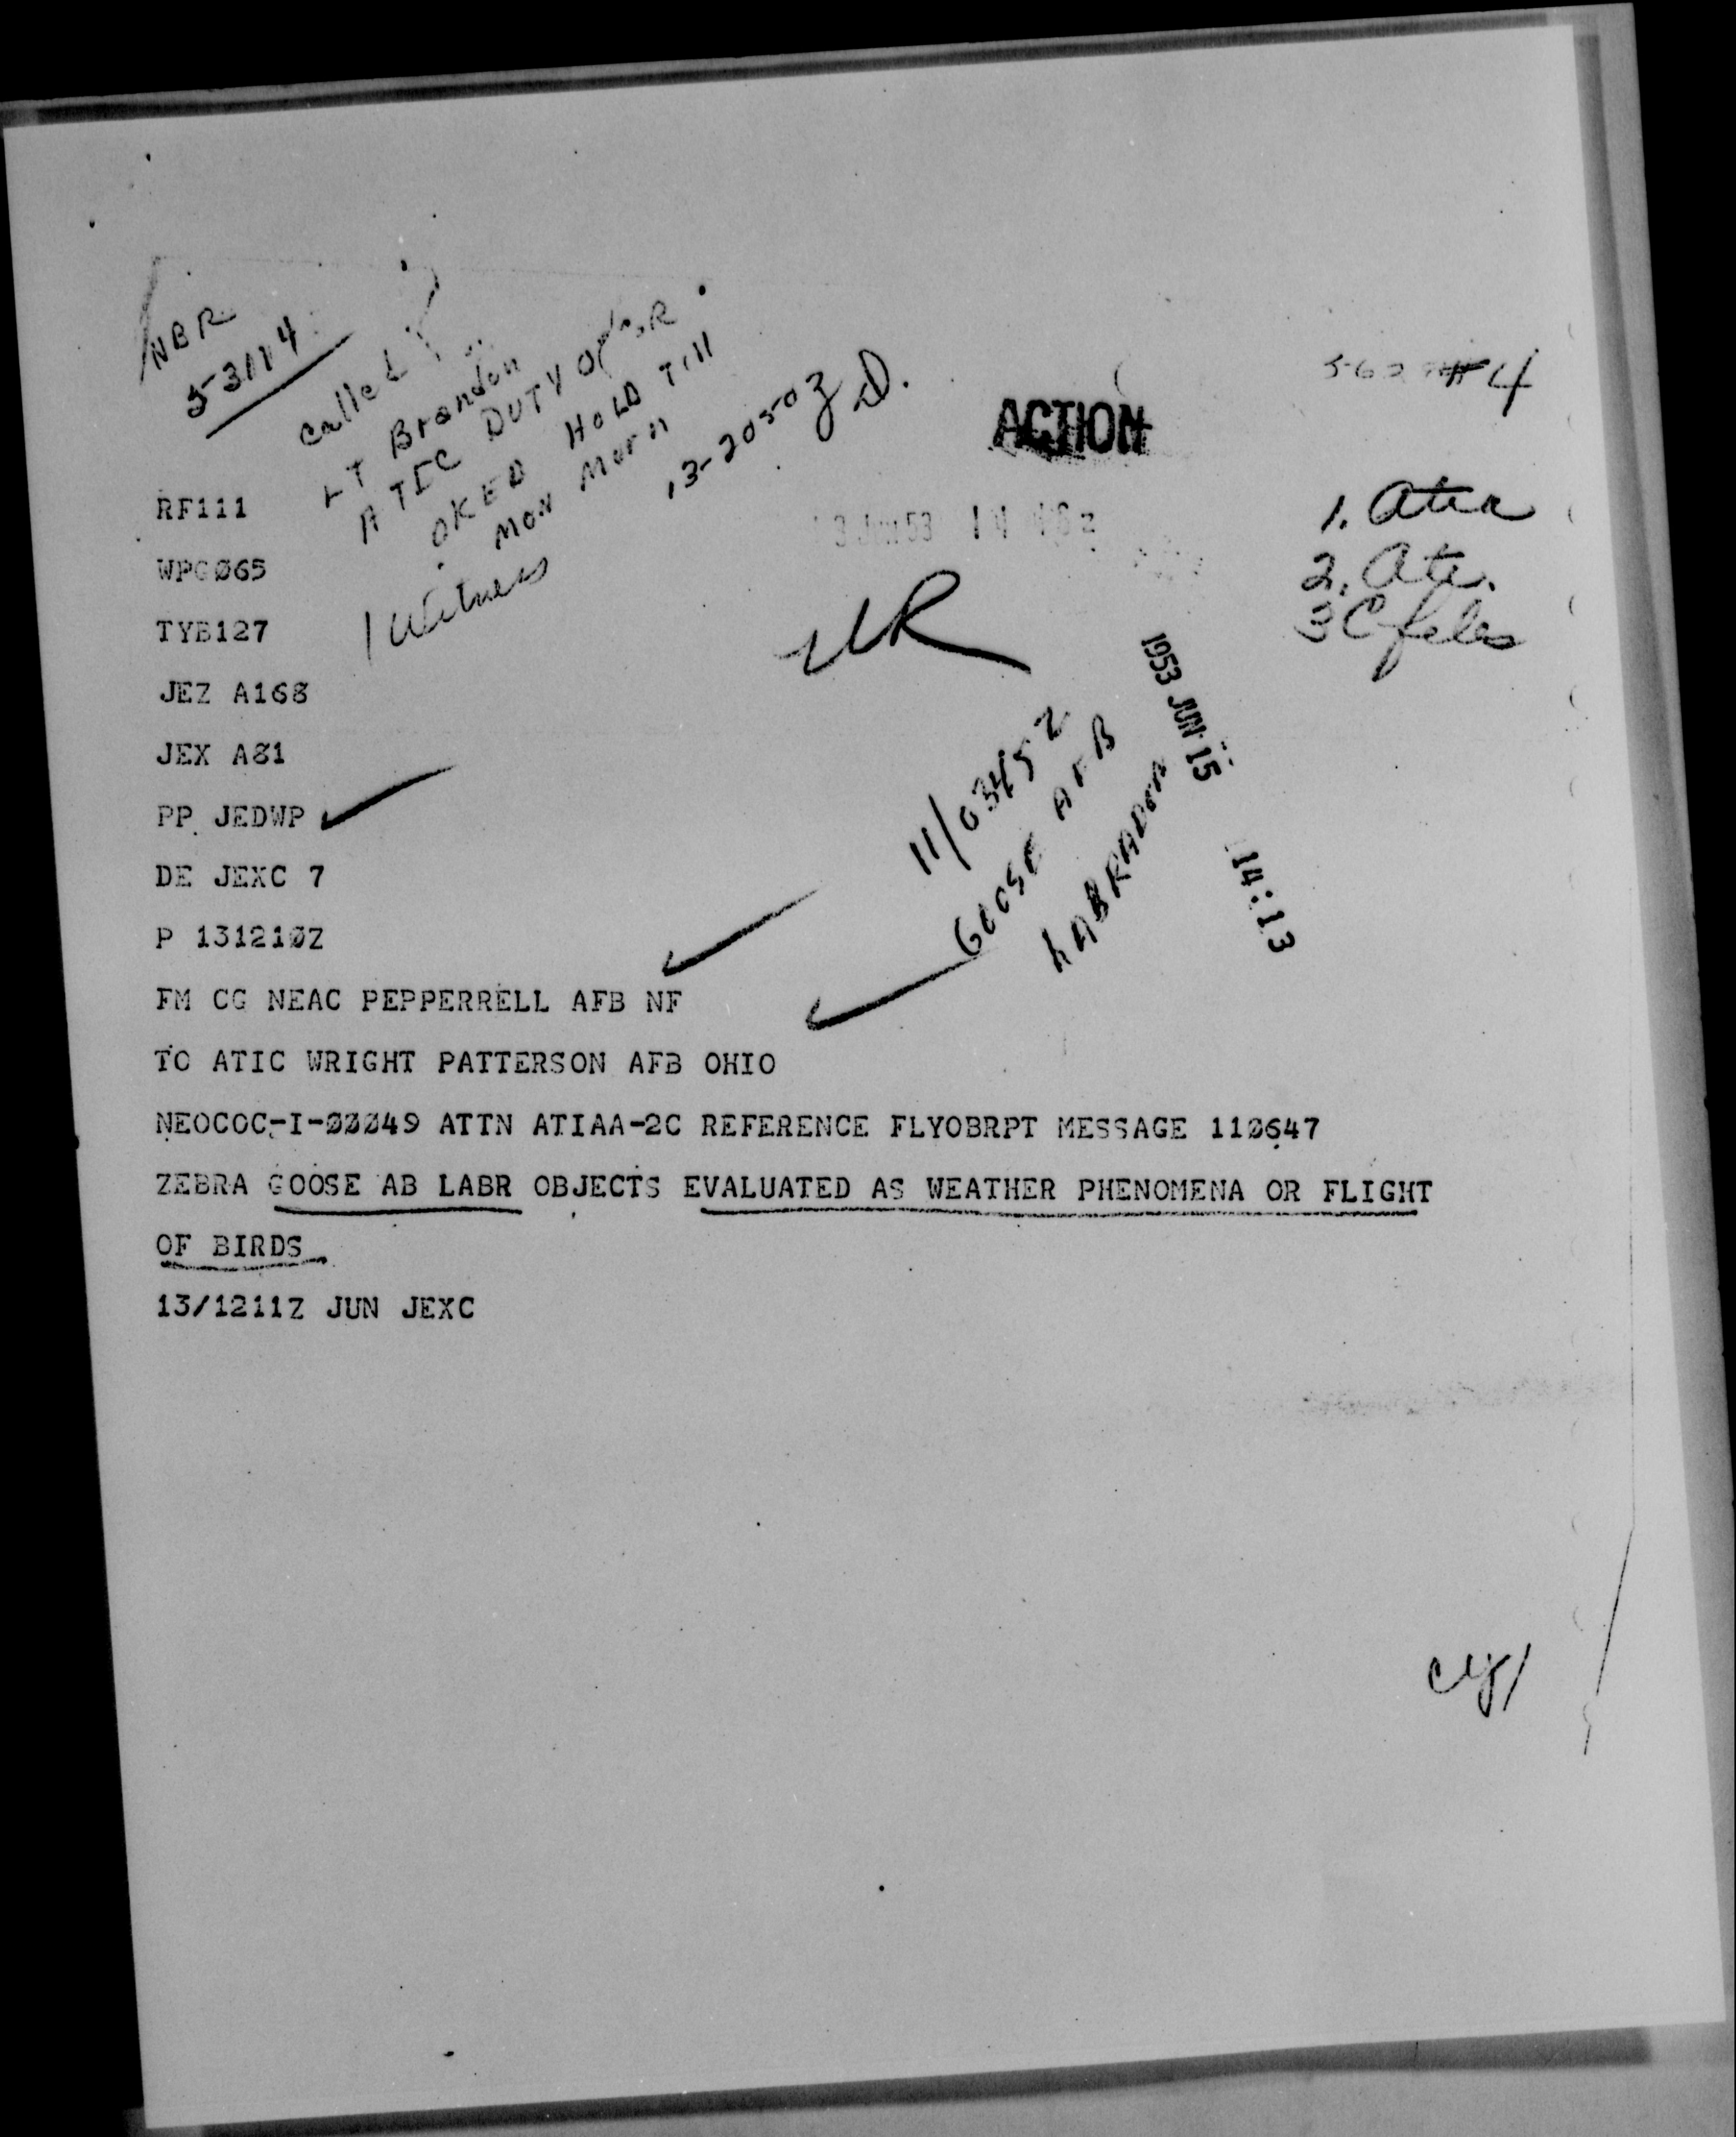 NBR
53114
Called
LT Brandon
ATIC DUTY
OKED HOLD Till
MON Morn
13-2050Z D.
1 Witness
ACTION
4
13 Jun 53 14
1.
2. Ati.
3 C files
UR
1953 JUN 15 14:13
11/0345Z
GOOSE AFB
LABRADOR
RF111
WPG065
TYB127
JEZ A168
JEX A81
PP JEDWP
DE JEXC 7
P 131210Z
FM CG NEAC PEPPERRELL AFB NF
TO ATIC WRIGHT PATTERSON AFB OHIO
NEOCOC-I-00049 ATTN ATIAA-2C REFERENCE FLYOBRPT MESSAGE 110647
ZEBRA GOOSE AB LABR OBJECTS EVALUATED AS WEATHER PHENOMENA OR FLIGHT
OF BIRDS
13/1211Z JUN JEXC